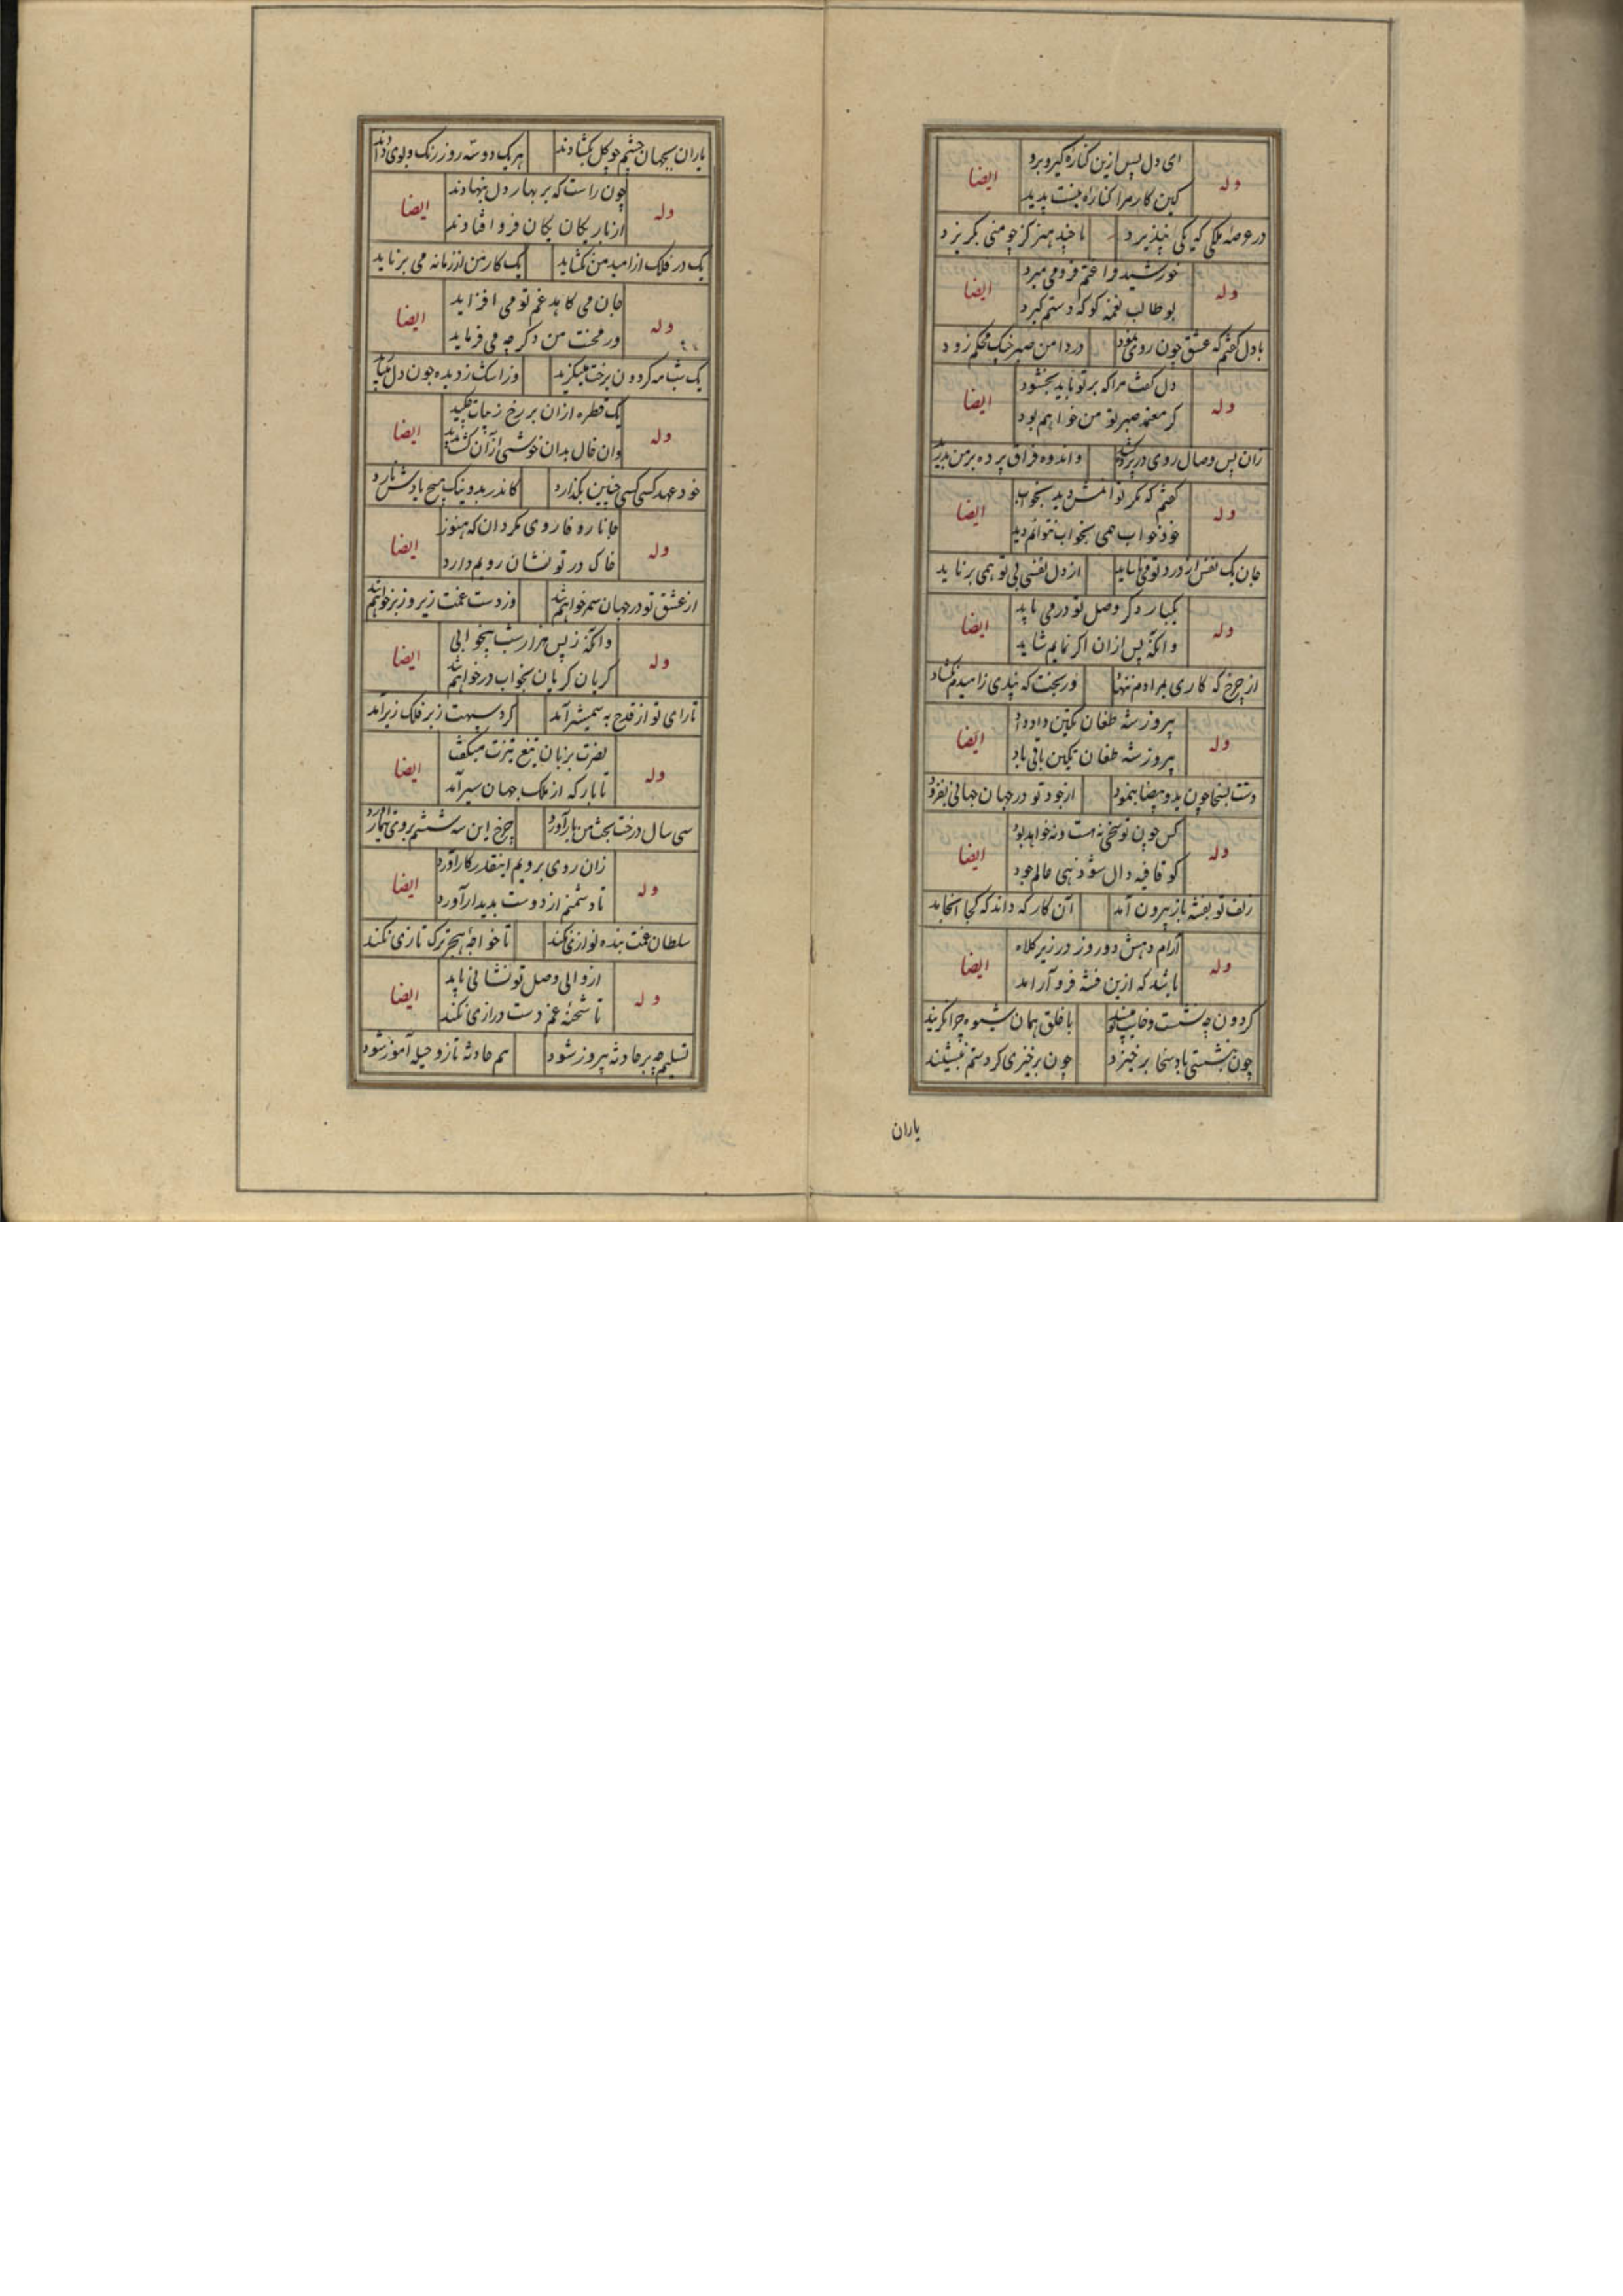 ای دل پس ازین کناره گیر و برد
وله ایضا
کین کار مرا کناره نیست پدید
در عرصه ملکی که یکی نپذیرد تا چند هنر کز چو منی بگریزد
خورشید فرا غم فرو می میرد
وله ایضا
بوطالب نغمه کو که دستم گیرد
با دل گفتم که عشق چون روی نمود در دامن صبر چنگ محکم زود
وله ایضا
دل گفت مرا که بر تو باید بخشود
گر معتمد صبر تو من خواهم بود
زان پس وصال روی در پرده کشید واندوه فراق پرده بر من بدرید
وله ایضا
گفتم که مگر توانمش دید بخواب
خود خواب همی بخواب نتوانم دید
جان یک نفس از درد تو می ناساید از دل نفسی بی تو همی برناید
وله ایضا
یکبار دگر وصل تو در می باید
وانگه پس از آن اگر نمایم شاید
از چرخ که کاری بمرادم ننهاد وز بخت که بندی ز امیدم نگشاد
وله ایضا
پیروز شه طغان تکین دادم داد
پیروز شه طغان تکین باقی باد
دست بسخا چون ید بیضا بنمود از جود تو در جهان جهانی بفزود
وله ایضا
کس چون تو سخی نه هست و نه خواهد بود
کو قافیه دال شو زهی عالم جود
زلف تو بفتنه باز بیرون آمد آن کار که داند که کجا انجامد
وله ایضا
آرام دهش دو روز در زیر کلاه
باشد که ازین فتنه فرو آرامد
گردون چو نشست و خاست می بیند با خلق همان شیوه چرا نگزیند
چون بنشستی باد سخا برخیزد چون برخیزی گرد ستم بنشیند
یاران
یاران بجهان چشم چو گل بگشادند هر یک دو سه روز رنگ و بوی دادند
وله ایضا
چون راست که بر بهار دل بنهادند
از بار یکان یکان فرو افتادند
یک در فلک از امید من نگشاید یک کار من از زمانه می برناید
وله ایضا
جان می کاهد غم تو می افزاید
در محنت من دگر چه می فرماید
یک شب مه گردون برخت مینگرید وز اشک ز دیده چون دل میبارید
وله ایضا
یک قطره از آن بر رخ زیبات چکید
وان خال بدان خوشی از آن گشت پدید
خود عهد کسی کسی چنین بگذارد کاندر بد و نیک هیچ یادش نارد
وله ایضا
جانا ره وفا روی مگردان که هنوز
خاک در تو نشان رویم دارد
از عشق تو در جهان سمر خواهم شد وز دست غمت زیر و زبر خواهم شد
وله ایضا
وانگه ز پس هزار شب بیخوابی
گریان گریان بخواب در خواهم شد
تا رای تو از قدح به شمشیر آمد گرد سپهت زبر فلک زیر آمد
وله ایضا
نصرت بزبان تیغ تیزت میگفت
تا بار که از ملک جهان سیر آمد
سی سال درخت بخت من بار آورد چرخ این سه ششم بروی هموار آورد
وله ایضا
زان روی برویم اینقدر کار آورد
تا دشمنم از دوست پدیدار آورد
سلطان غمت بنده نوازی نکند تا خواجه هجر ترک تازی نکند
وله ایضا
از والی وصل تو نشانی باید
تا شحنه غم دست درازی نکند
تسلیم چو بر حادثه پیروز شود هم حادثه تازه و حیله آموز شود